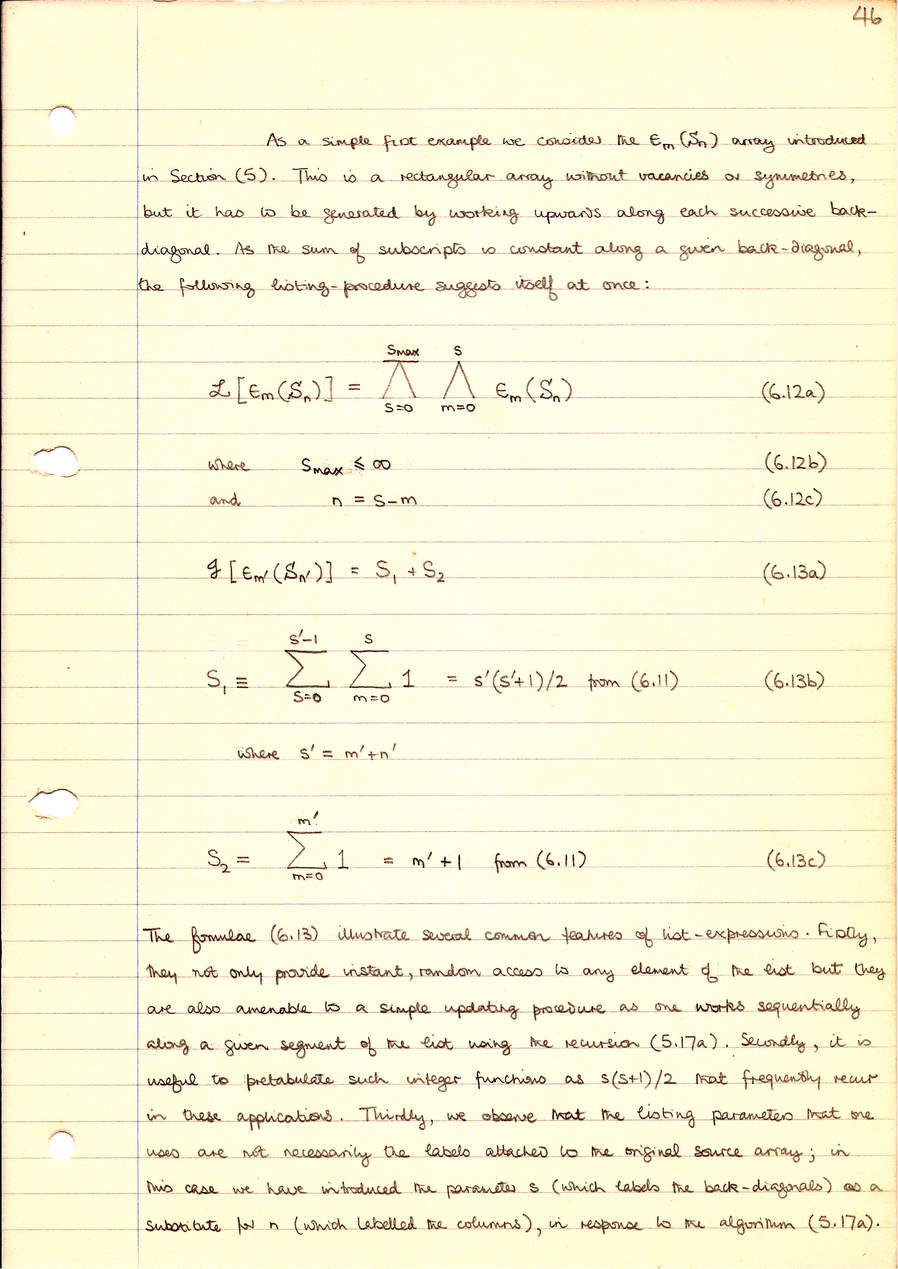 46
As a simple first example we consider the ϵₘ(Sₙ) array introduced
in Section (5). This is a rectangular array without vacancies or symmetries,
but it has to be generated by working upwards along each successive back-
diagonal. As the sum of subscripts is constant along a given back-diagonal,
the following listing-procedure suggests itself at once:
Smax s
ℒ[ϵₘ(Sₙ)] = Λ Λ ϵₘ(Sₙ) (6.12a)
S=0 m=0
where Smax ⩽ ∞ (6.12b)
and n = s-m (6.12c)
𝒥[ϵm′(Sn′)] = S₁ + S₂ (6.13a)
s′-1 s
S₁ ≡ ∑ ∑ 1 = s′(s′+1)/2 from (6.11) (6.13b)
S=0 m=0
where s′ = m′+n′
m′
S₂ = ∑ 1 = m′+1 from (6.11) (6.13c)
m=0
The formulae (6.13) illustrate several common features of list-expressions. Firstly,
they not only provide instant, random access to any element of the list but they
are also amenable to a simple updating procedure as one works sequentially
along a given segment of the list using the recursion (5.17a). Secondly, it is
useful to pretabulate such integer functions as s(s+1)/2 that frequently recur
in these applications. Thirdly, we observe that the listing parameters that one
uses are not necessarily the labels attached to the original source array; in
this case we have introduced the parameter s (which labels the back-diagonals) as a
substitute for n (which labelled the columns), in response to the algorithm (5.17a).